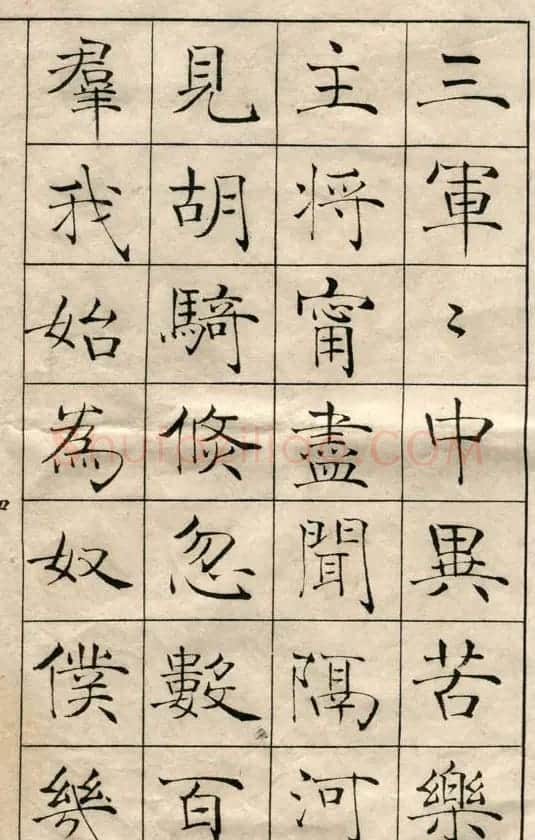 三軍〻中異苦樂
主將甯盡聞隔河
見胡騎倐忽數百
羣我始為奴僕幾